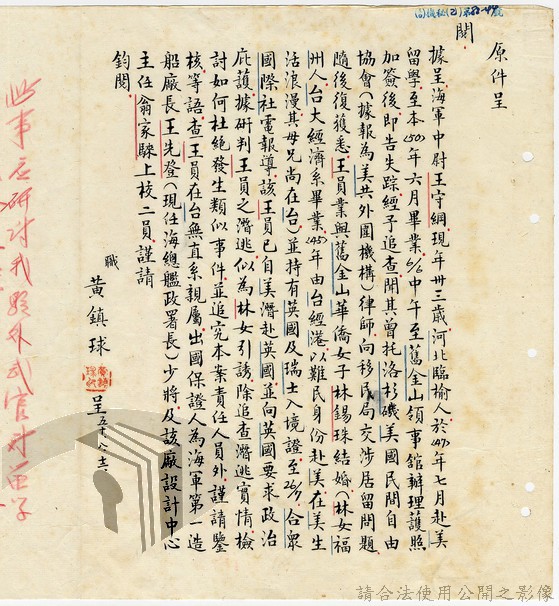 原件呈
閱
據呈海軍中尉王守綱現年卅三歲河北臨榆人於(49)年七月赴美
留學至本(50)年六月畢業6/6中午至舊金山領事館辦理護照
加簽後即告失踪經予追查聞其曾托洛杉磯美國民間自由
協會(據報為美共外圍機構)律師向移民局交涉居留問題
隨後復獲悉王員業與舊金山華僑女子林錫珠結婚(林女福
州人台大經濟系畢業(45)年由台經港以難民身份赴美在美生
活浪漫其母兄尚在台)並持有英國及瑞士入境證至26/7合眾
國際社電報導該王員已自美潛赴英國並向英國要求政治
庇護據研判王員之潛逃似為林女引誘除追查潛逃實情檢
討如何杜絕發生類似事件並追究本案責任人員外謹請鑒
核等語查王員在台無直系親屬出國保證人為海軍第一造
船廠長王先登(現任海總艦政署長)少將及該廠設計中心
主任翁家騋上校二員謹請
鈞閱
職黃鎮球呈五十、八、十二、
此事应研討我駐外武官对留学
請合法使用公開之影像